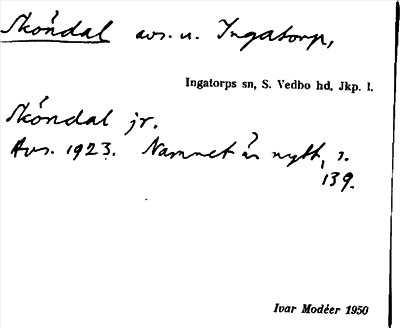 Sköndal avs. u. Ingatorp,
Ingatorps sn, S. Vedbo hd, Jkp. l.
Sköndal jr.
Avs. 1923. Namnet är nytt, s.
139.
Ivar Modéer 1950